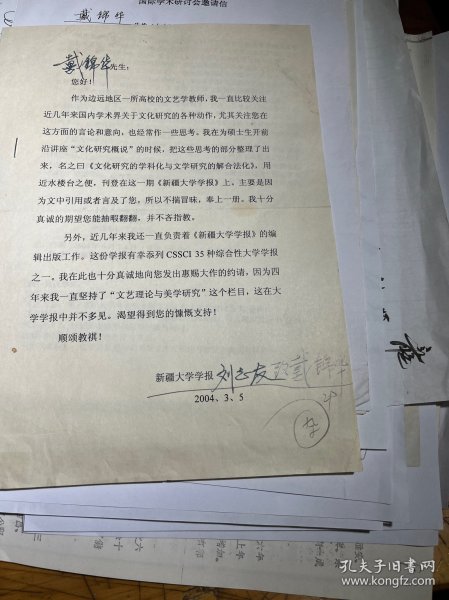 国际学术研讨会邀请信
戴锦华
戴锦华先生：
您好！
作为边远地区一所高校的文艺学教师，我一直比较关注
近几年来国内学术界关于文化研究的各种动作，尤其关注您在
这方面的言论和意向，也经常作一些思考。我在为硕士生开前
沿讲座“文化研究概说”的时候，把这些思考的部分整理了出
来，名之曰《文化研究的学科化与文学研究的解合法化》，用
近水楼台之便，刊登在这一期《新疆大学学报》上。主要是因
为文中引用或者言及了您，所以不揣冒昧，奉上一册。我十分
真诚的期望您能抽暇翻翻，并不吝指教。
另外，近几年来我还一直负责着《新疆大学学报》的编
辑出版工作。这份学报有幸忝列 CSSCI 35 种综合性大学学报
之一。我在此也十分真诚地向您发出惠赐大作的约请，因为四
年来我一直坚持了“文艺理论与美学研究”这个栏目，这在大
学学报中并不多见。渴望得到您的慷慨支持！
顺颂教祺！
新疆大学学报 刘志友 致戴锦华
2004、3、5
孔夫子旧书网
www.kongfz.com